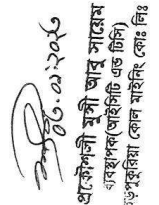 ০৩.০১.২০২৩
প্রকৌশলী মুন্সী আবু সায়েম
ব্যবস্থাপক(আইসিটি এন্ড টিসি)
বড়পুকুরিয়া কোল মাইনিং কোঃ লিঃ